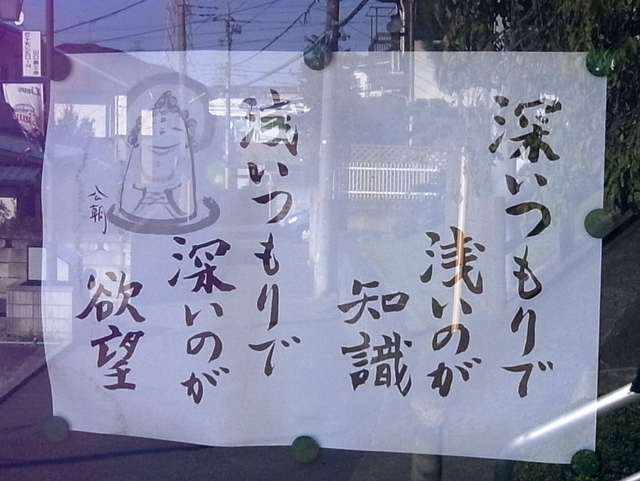 深いつもりで
浅いのが
知識
浅いつもりで
深いのが
欲望
公朝